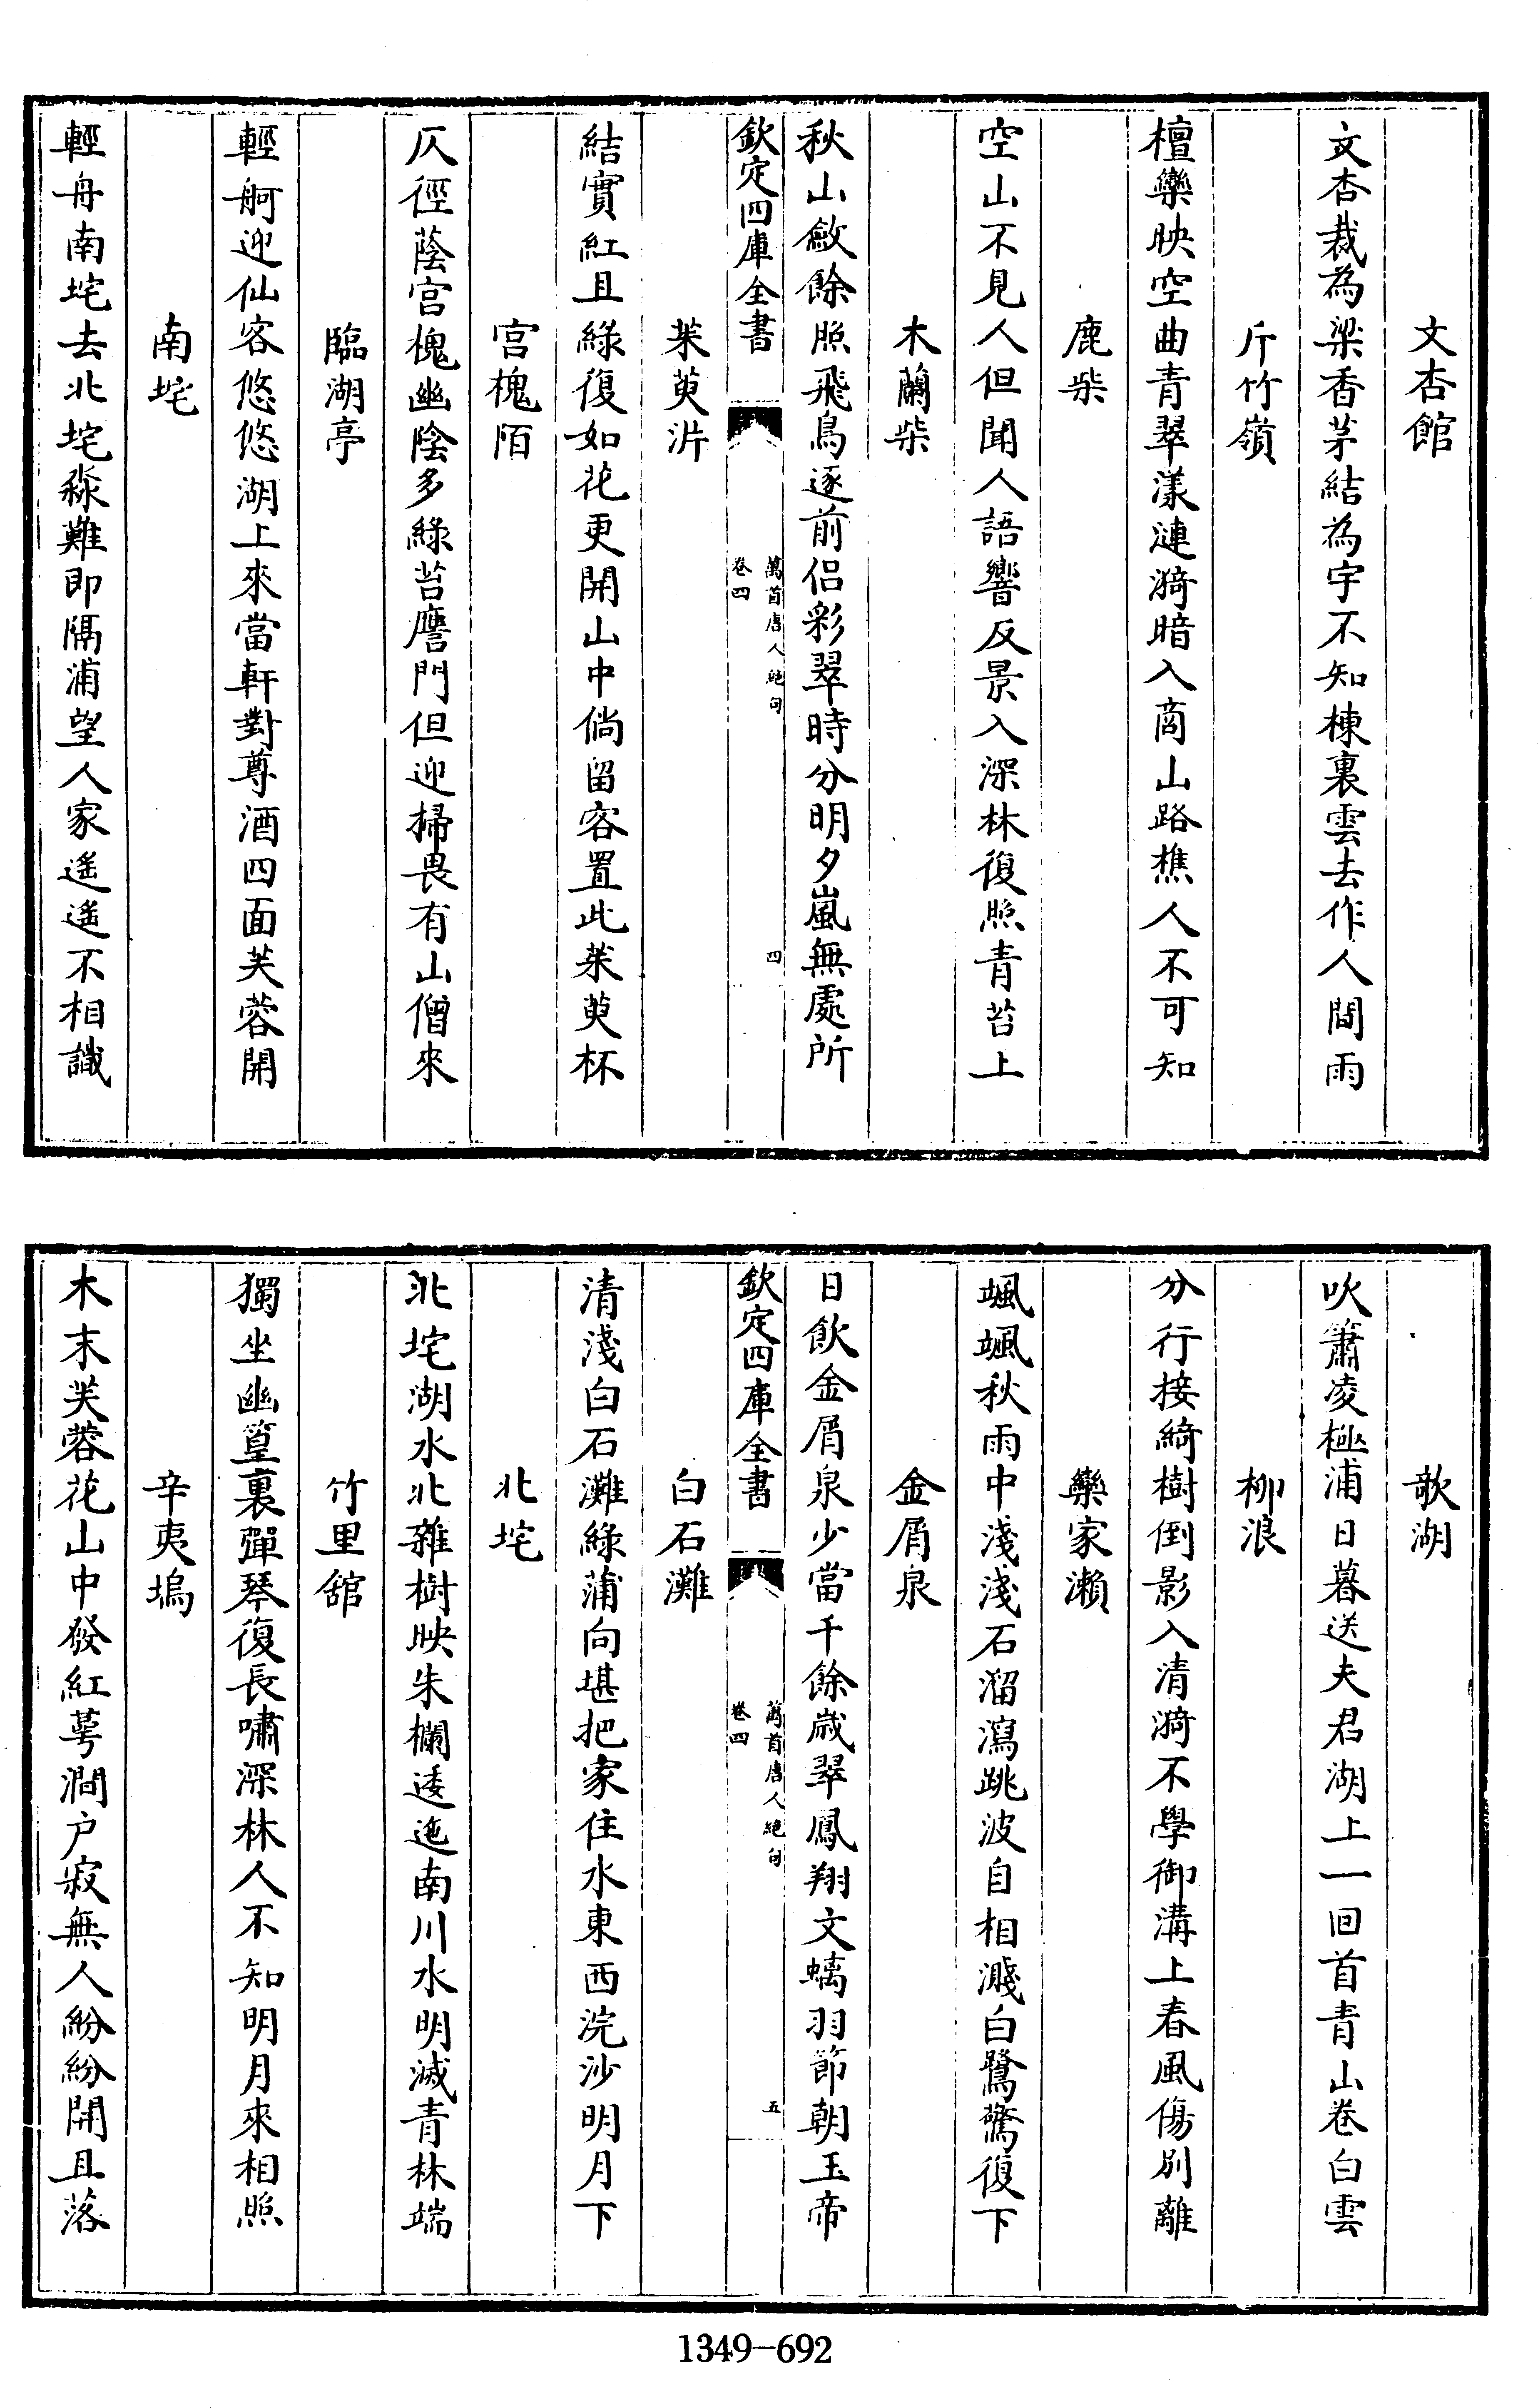 文杏館
文杏裁為梁香茅結為宇不知棟裏雲去作人間雨
斤竹嶺
檀欒映空曲青翠漾漣漪暗入商山路樵人不可知
鹿柴
空山不見人但聞人語響反景入深林復照青苔上
木蘭柴
秋山斂餘照飛鳥逐前侶彩翠時分明夕嵐無處所
欽定四庫全書
萬首唐人絕句
卷四
四
茱萸沜
結實紅且綠復如花更開山中倘留客置此茱萸杯
宫槐陌
仄徑蔭宫槐幽陰多綠苔應門但迎掃畏有山僧來
臨湖亭
輕舸迎仙客悠悠湖上來當軒對尊酒四面芙蓉開
南垞
輕舟南垞去北垞淼難即隔浦望人家遙遙不相識
欹湖
吹簫凌極浦日暮送夫君湖上一回首青山卷白雲
柳浪
分行接綺樹倒影入清漪不學御溝上春風傷別離
欒家瀨
颯颯秋雨中淺淺石溜瀉跳波自相濺白鷺驚復下
金屑泉
日飲金屑泉少當千餘歲翠鳳翔文螭羽節朝玉帝
欽定四庫全書
萬首唐人絕句
卷四
五
白石灘
清淺白石灘綠蒲向堪把家住水東西浣沙明月下
北垞
北垞湖水北雜樹映朱欄逶迤南川水明滅青林端
竹里舘
獨坐幽篁裏彈琴復長嘯深林人不知明月來相照
辛夷塢
木末芙蓉花山中發紅萼澗户寂無人紛紛開且落
1349-692